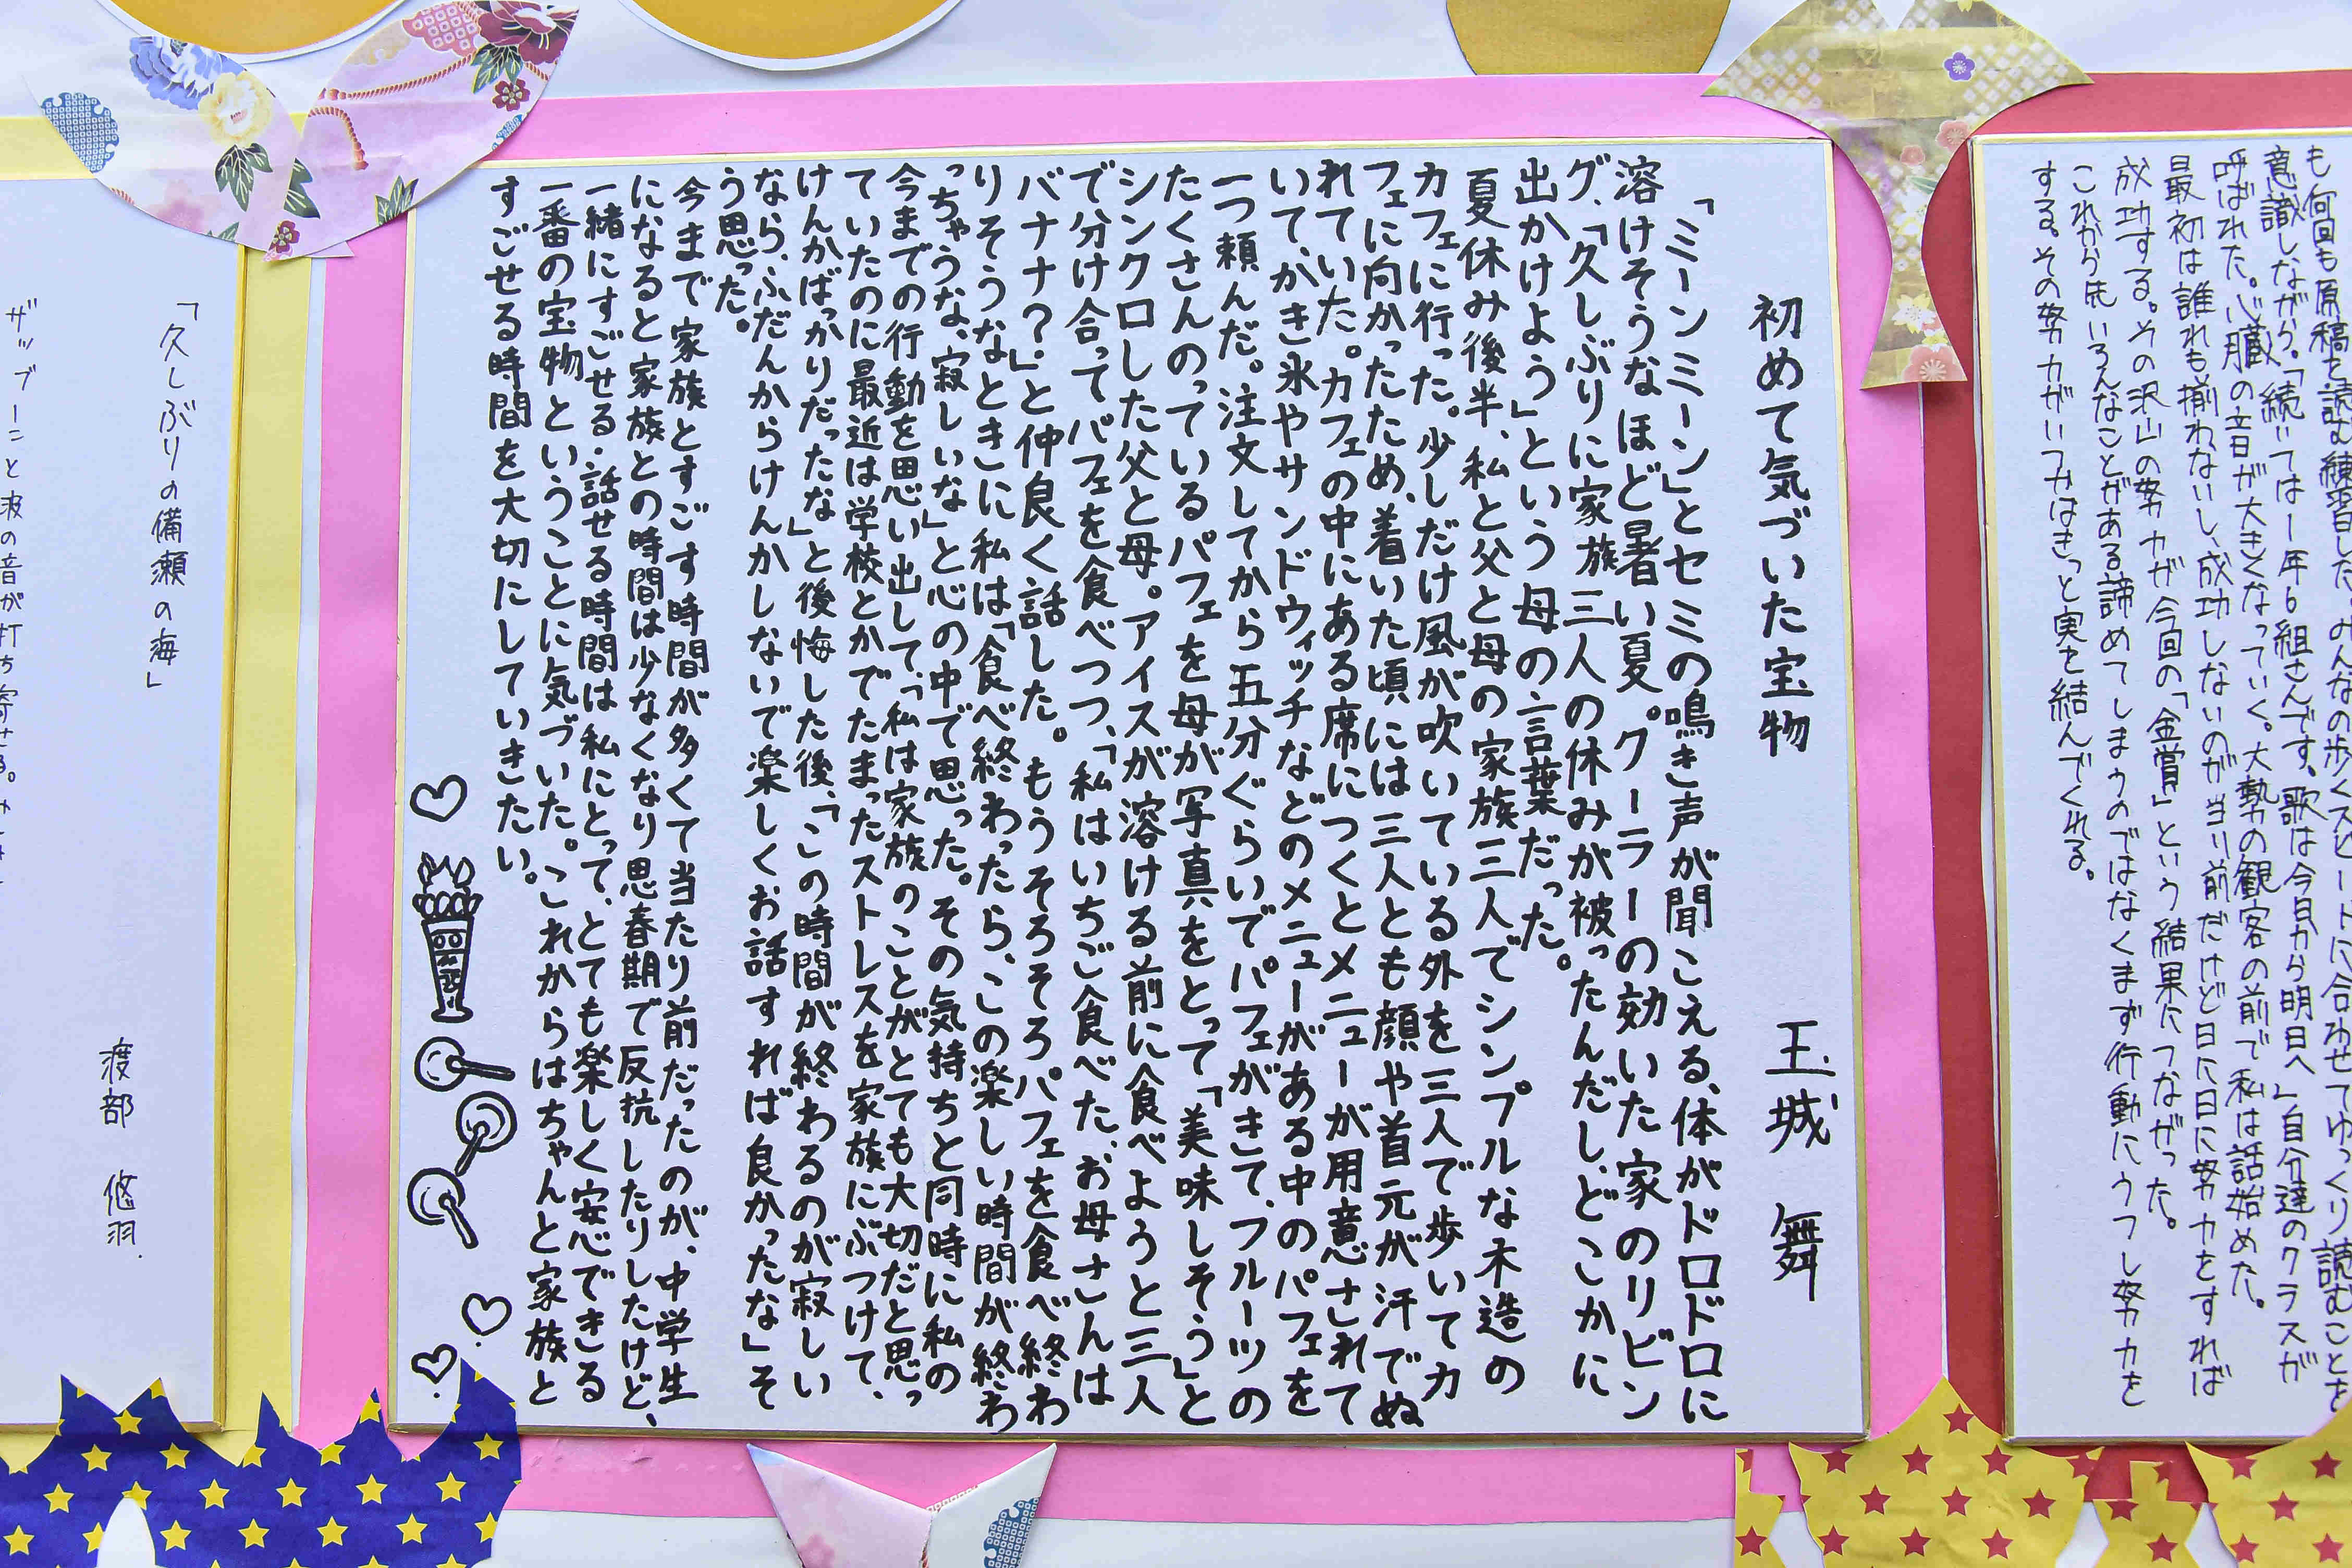 も何回も原稿を読む練習した。みんなの歩くスピードに合わせてゆっくり読むことを
意識しながら。「続いては1年6組さんです。歌は今日から明日へ」自分達のクラスが
呼ばれた。心臓の音が大きくなっていく。大勢の観客の前で私は話始めた。
最初は誰れも揃わないし、成功しないのが当り前だけど日に日に努力をすれば
成功する。その沢山の努力が今回の「金賞」という結果につながった。
これから先いろんなことがある諦めてしまうのではなくまず行動にうつし努力を
する。その努力がいつかはきっと実を結んでくれる。
初めて気づいた宝物　玉城　舞
「ミーンミーン」とセミの鳴き声が聞こえる、体がドロドロに
溶けそうなほど暑い夏。クーラーの効いた家のリビン
グ、「久しぶりに家族三人の休みが被ったんだし、どこかに
出かけよう」という母の言葉だった。
夏休み後半、私と父と母の家族三人でシンプルな木造の
カフェに行った。少しだけ風が吹いている外を三人で歩いてカ
フェに向かったため、着いた頃には三人とも顔や首元が汗でぬ
れていた。カフェの中にある席につくとメニューが用意されて
いて、かき氷やサンドウィッチなどのメニューがある中のパフェを
一つ頼んだ。注文してから五分ぐらいでパフェがきて、フルーツの
たくさんのっているパフェを母が写真をとって「美味しそう」と
シンクロした父と母。アイスが溶ける前に食べようと三人
で分け合ってパフェを食べつつ、「私はいちご食べた、お母さんは
バナナ？」と仲良く話した。もうそろそろパフェを食べ終わ
りそうなときに私は「食べ終わったら、この楽しい時間が終わ
っちゃうな、寂しいな」と心の中で思った。その気持ちと同時に私の
今までの行動を思い出して、「私は家族のことがとても大切だと思っ
ていたのに最近は学校とかでたまったストレスを家族にぶつけて、
けんかばっかりだったな」と後悔した後、「この時間が終わるのが寂しい
なら、ふだんからけんかしないで楽しくお話すれば良かったな」そ
う思った。
今まで家族とすごす時間が多くて当たり前だったのが、中学生
になると家族との時間は少なくなり思春期で反抗したりしたけど、
一緒にすごせる・話せる時間は私にとって、とても楽しく安心できる
一番の宝物ということに気づいた。これからはちゃんと家族と
すごせる時間を大切にしていきたい。
「久しぶりの備瀬の海」
渡部　悠羽
ザップーンと波の音が打ち寄せる。